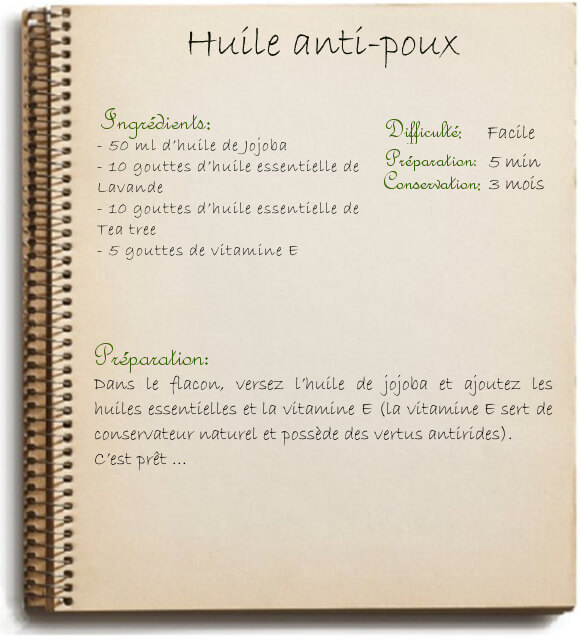 Huile anti-poux
Ingrédients:
- 50 ml d'huile de Jojoba
- 10 gouttes d'huile essentielle de
Lavande
- 10 gouttes d'huile essentielle de
Tea tree
- 5 gouttes de vitamine E
Difficulté: Facile
Préparation: 5 min
Conservation: 3 mois
Préparation:
Dans le flacon, versez l'huile de jojoba et ajoutez les
huiles essentielles et la vitamine E (la vitamine E sert de
conservateur naturel et possède des vertus antirides).
C'est prêt ...